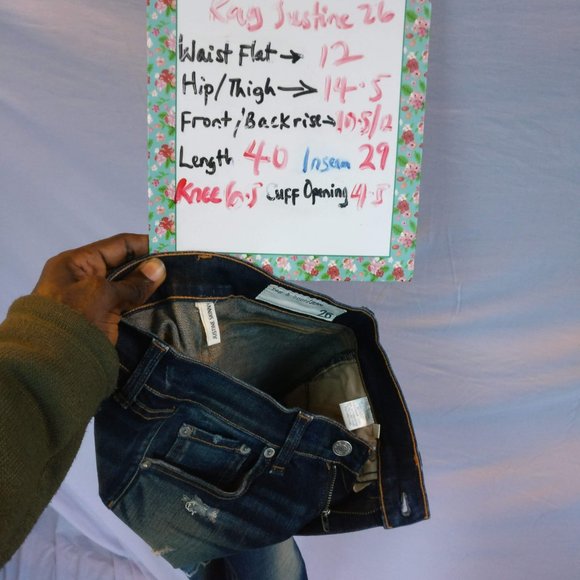 Rag Justine 26
Waist Flat → 12
Hip/Thigh → 14.5
Front/Back rise → 10.5/12
Length 40 Inseam 29
Knee 6.5 Cuff Opening 4.5
26